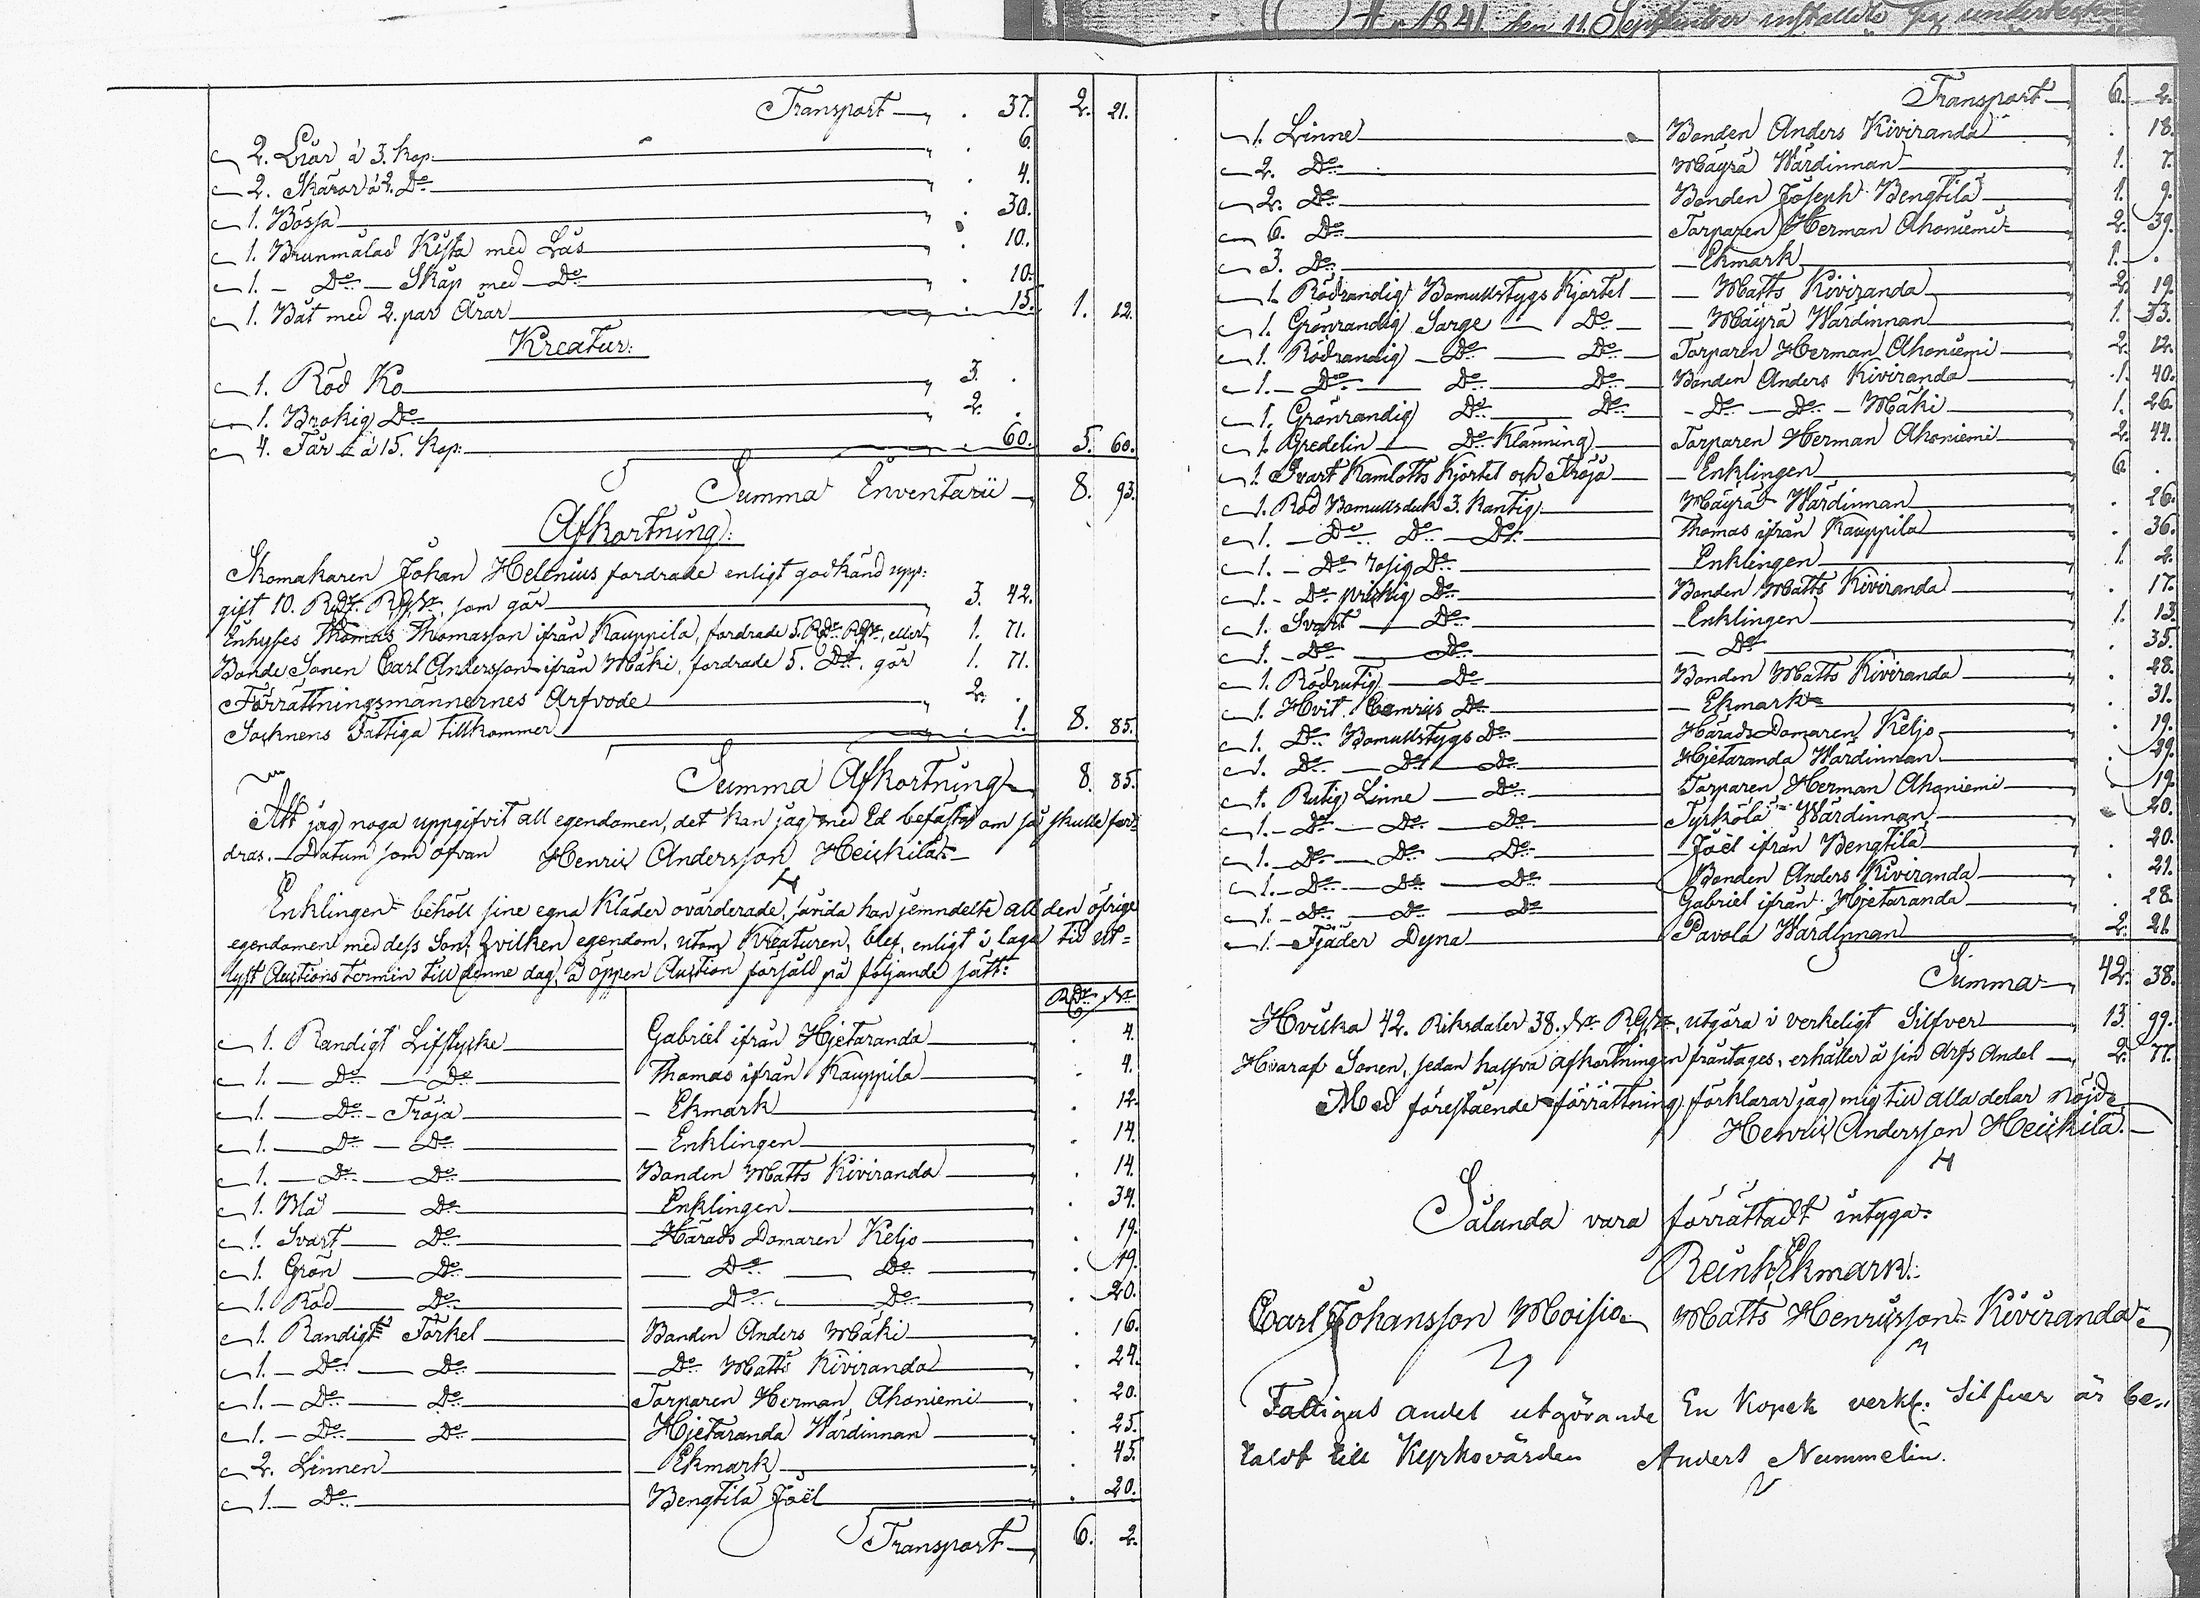 A:o 1841 den 11. September installde sig
Transport . 37. 2. 21.
2. Liar á 3. kop: . 6.
2. Skäror á 2. Do . 4.
1. Bössa . 30.
1. Brunmålad Kista med Lås . 10.
1. Do Skåp med Do . 10.
1. Båt med 2. par Åror . 15. 1. 12.
Kreatur:
1. Röd Ko 3. .
1. Brokig Do 2. .
4. Får á 15. Kop: . 60. 5. 60.
Summa Inventarii 8. 93.
Afkortning:
Skomakaren Johan Helenius fordrade enligt godkänd upp:
gift 10. Rdr. Rgsr. som gör 3. 42.
Enhyses Thomas Thomasson ifrån Kauppila, fordrade 5. Rdr Rgsr, eller 1. 71.
Bonde Sonen Carl Andersson ifrån Mäki, fordrade 5. Do. gör 1. 71.
Förrättningsmännernes Arfvode 2. .
Socknens Fattiga tillkommer . 1. 8. 85.
Summa Afkortning 8. 85.
Att jag noga uppgifvit all egendomen, det kan jag med Ed befästa om så skulle for:
dras. Datum som ofvan Henric Andersson Heickilä
Enklingen behöll sine egna Kläder ovärderade, såvida han jemndelte all den öfrige
egendomen med dess Son; hvilken egendom, utom Kreaturen, blef, enligt i laga tid ut=
lyst Auctions termin till denne dag, å öppen Auction försåld på följande sätt:
Rdr sk
1. Randigt Lifstycke Gabriel ifrån Hjetaranda . 4.
1. Do Do Thomas ifrån Kauppila . 4.
1. Do Tröja Ekmark . 12.
1. Do Do Enklingen . 14.
1. Do Do Bonden Matts Kiviranda . 14.
1. Blå Do Enklingen . 34.
1. Svart Do Härads Domaren Keljo . 19.
1. Grön Do Do Do . 19.
1. Röd Do Do Do . 20.
1. Randigt Förkel Bonden Anders Mäki . 16.
1. Do Do Do Matts Kiviranda . 24.
1. Do Do Torparen Herman Ahoniemi . 20.
1. Do Do Hjetaranda Wärdinnan . 25.
2. Linnen Ekmark . 45.
1. Do Bengtilä Joël . 20.
Transport 6. 2.
Transport 6. 2.
1. Linne Bonden Anders Kiviranda . 18.
2. Do Mäyrä Wärdinnan 1. 7.
2. Do Bonden Joseph Bengtilä 1. 9.
6. Do Torparen Herman Ahoniemi 2. 39.
3. Do Ekmark 1. .
1. Rödrandig Bomullstygs Kjortel Matts Kiviranda 2. 19.
1. Grönrandig Sarge Do Mäyrä Wärdinnan 1. 33.
1. Rödrandig Do Do Torparen Herman Ahoniemi 2. 12.
1. Do Do Do Bonden Anders Kiviranda 1. 40.
1. Grönrandig Do Do Do Do Mäki 1. 26.
1. Gredelin Do Klänning Torparen Herman Ahoniemi 2. 44.
1. Svart Kamlotts Kjortel och Tröja Enklingen 6. .
1. Röd Bomullsduk 3. kantig Mäyrä Wärdinnan . 26.
1. Do Do Do Thomas ifrån Kauppila . 36.
1. Do rosig Do Enklingen 1. 2.
1. Do prickig Do Bonden Matts Kiviranda . 17.
1. Svart Do Enklingen 1. 13.
1. Do Do Do . 35.
1. Rödrutig Do Bonden Matts Kiviranda . 28.
1. Hvit Camrics Do Ekmark . 31.
1. Do Bomullstygs Do Härads Domaren Keljo . 19.
1. Do Do Do Hjetaranda Wärdinnan . 29.
1. Rutig Linne Do Torparen Herman Ahoniemi . 19.
1. Do Do Do Tyrkölä Wärdinnan . 20.
1. Do Do Do Joël ifrån Bengtilä . 20.
1. Do Do Do Bonden Anders Kiviranda . 21.
1. Do Do Do Gabriel ifrån Hjetaranda . 28.
1. Fjäder Dyna Pavola Wärdinnan 2. 21.
Summa 42. 38.
Hvilka 42. Riksdaler 38. sk Rgsr, utgöra i verkeligt Silfver 13. 99.
Hvaraf Sonen, sedan halfva afkortningen fråntages, erhåller å sin Arfs Andel 2. 77.
Med förestående förrättning förklarar jag mig till alla delar nöjd
Henric Andersson Heickilä.
Sålunda vara förrättadt intyga:
Reinh: Ekmark:
Carl Johansson Moisio Matts Henricsson Kiviranda
Fattigas andel utgörande En Kopek verkl: Silfver är be=
taldt till Kyrkovärden Anders Nummelin.